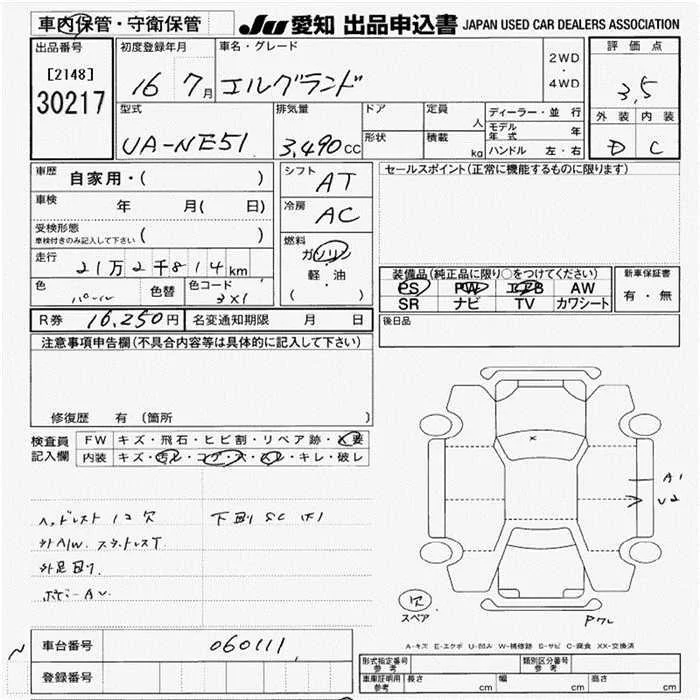 車内保管・守衛保管
JU 愛知 出品申込書 JAPAN USED CAR DEALERS ASSOCIATION
出品番号
[2148]
30217
初度登録年月
16 7月
車名・グレード
エルグランド
2WD
・
4WD
評価点
3,5
外装 内装
D C
型式
UA-NE51
排気量
3,490cc
ドア
形状
定員
人
積載
kg
ディーラー・並行
モデル年式 年
ハンドル 左・右
車歴 自家用・( )
車検 年 月( 日)
受検形態
車検付きのみ記入して下さい ( )
走行
21万2千814km
色 パール
色替
色コード
3×1
シフト AT
冷房 AC
燃料
ガソリン
軽・油
( )
セールスポイント(正常に機能するものに限ります)
装備品(純正品に限り○をつけてください)
PS PW エアB AW
SR ナビ TV カワシート
新車保証書
有・無
R券 16,250円
名変通知期限 月 日
後日品
注意事項申告欄(不具合内容等は具体的に記入して下さい)
修復歴 有 〔箇所 〕
検査員
記入欄
FW キズ・飛石・ヒビ割・リペア跡・×要
内装 キズ・汚レ・コゲ・穴・スレ・キレ・破レ
ヘッドレスト 1コ欠
下廻り SC
外A/W. スタッドレスT
外足廻り.
ボデーAU
A1
U2
欠
スペア
A-キズ E-エクボ U-凹み W-補修跡 S-サビ C-腐食 XX-交換済
車台番号 060111
登録番号
型式指定番号
参考
類別区分番号
参考
車庫証明用
参考
長さ cm 幅 cm 高さ cm